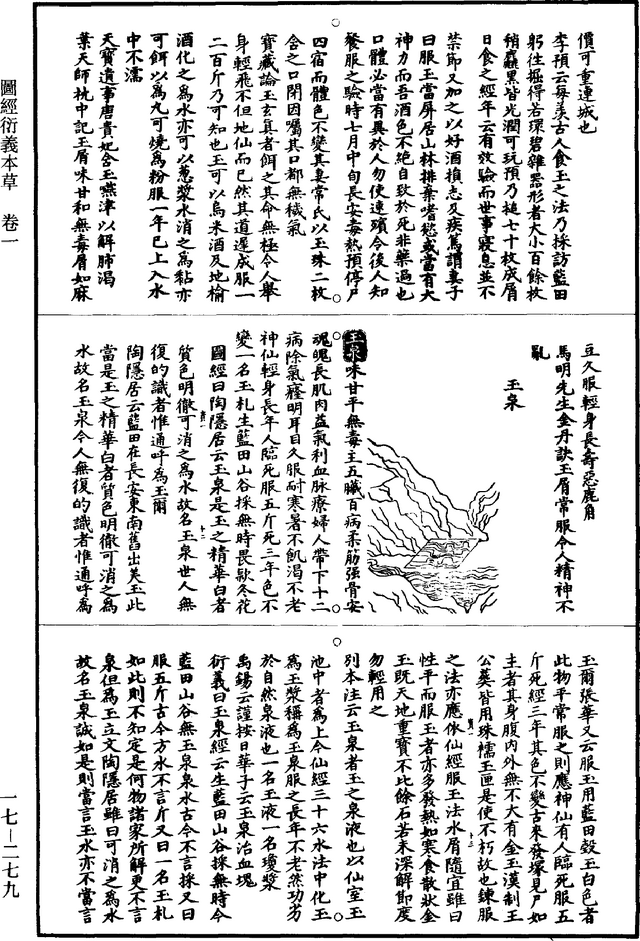 圖經衍義本草　卷一
一七—二七九
價可重連城也
李預云每羨古人食玉之法乃採訪藍田
躬往掘得若環碧雜器形者大小百餘枚
稍麤黑皆光潤可玩預乃搥七十枚成屑
日食之經年云有效驗而世事寢息並不
禁節又加之以好酒損志及疾篤謂妻子
曰服玉當屏居山林排棄嗜慾或當有大
神力而吾酒色不絕自致於死非藥過也
口體必當有異於人勿使速殯令後人知
餐服之驗時七月中旬長安毒熱預停尸
四宿而體色不變其妻常氏以玉珠二枚
含之口閉因囑其口都無穢氣
寶藏論玉玄真者餌之其命無極令人舉
身輕飛不但地仙而已然其道遲成服一
二百斤乃可知也玉可以烏米酒及地榆
酒化之為水亦可以葱漿水消之為黏亦
可餌以為丸可燒為粉服一年已上入水
中不濡
天寶遺事唐貴妃含玉嚥津以解肺渴
葉天師枕中記玉屑味甘和無毒屑如麻
豆久服輕身長壽惡鹿角
馬明先生金丹訣玉屑常服令人精神不
亂
玉泉
玉泉味甘平無毒主五臟百病柔筋強骨安
魂魄長肌肉益氣利血脉療婦人帶下十二
病除氣癃明耳目久服耐寒暑不飢渴不老
神仙輕身長年人臨死服五斤死三年色不
變一名玉札生藍田山谷採無時畏欵冬花
圖經曰陶隱居云玉泉是玉之精華白者
質色明徹可消之為水故名玉泉世人無
復的識者惟通呼為玉爾
陶隱居云藍田在長安東南舊出美玉此
當是玉之精華白者質色明徹可消之為
水故名玉泉今人無復的識者惟通呼為
玉爾張華又云服玉用藍田穀玉白色者
此物平常服之則應神仙有人臨死服五
斤死經三年其色不變古來發塚見尸如
生者其身腹內外無不大有金玉漢制王
公葬皆用珠襦玉匣是使不朽故也鍊服
之法亦應依仙經服玉法水屑隨宜雖曰
性平而服玉者亦多發熱如寒食散狀金
玉既天地重寶不比餘石若未深解節度
勿輕用之
別本注云玉泉者玉之泉液也以仙室玉
池中者為上今仙經三十六水法中化玉
為玉漿稱為玉泉服之長年不老然功劣
於自然泉液也一名玉液一名瓊漿
禹錫云謹按日華子云玉泉治血塊
衍義曰玉泉經云生藍田山谷採無時今
藍田山谷無玉泉泉水古今不言採又曰
服五斤古今方水不言斤又曰一名玉札
如此則不知定是何物諸家所解更不言
泉但為玉立文陶隱居雖曰可消之為水
故名玉泉誠如是則當言玉水亦不當言